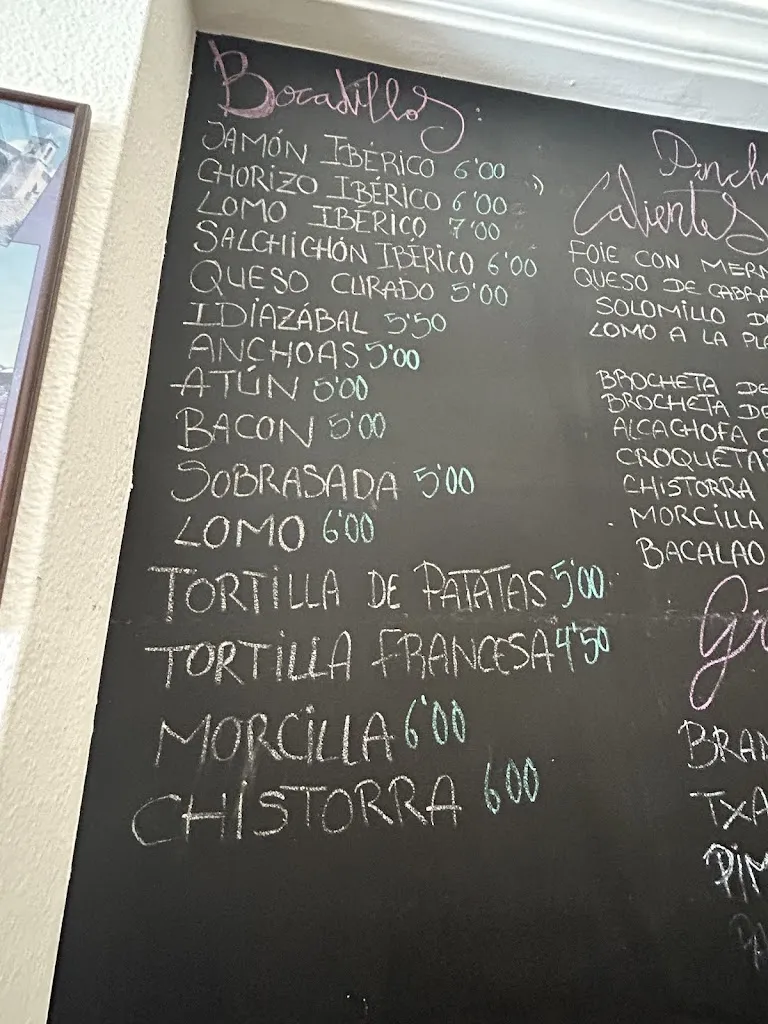 Bocadillos:
JAMÓN IBÉRICO 6'00
CHORIZO IBÉRICO 6'00
LOMO IBÉRICO 7'00
SALCHICHÓN IBÉRICO 6'00
QUESO CURADO 5'00
IDIAZÁBAL 5'50
ANCHOAS 5'00
ATÚN 5'00
BACON 5'00
SOBRASADA 5'00
LOMO 6'00
TORTILLA DE PATATAS 5'00
TORTILLA FRANCESA 4'50
MORCILLA 6'00
CHISTORRA 6'00
Pinch
Calientes
FOIE CON MERM
QUESO DE CABRA
SOLOMILLO D
LOMO A LA PLA
BROCHETA DE
BROCHETA DE
ALCACHOFA C
CROQUETAS
CHISTORRA
MORCILLA
BACALAO
BRAN
TXA
PIM